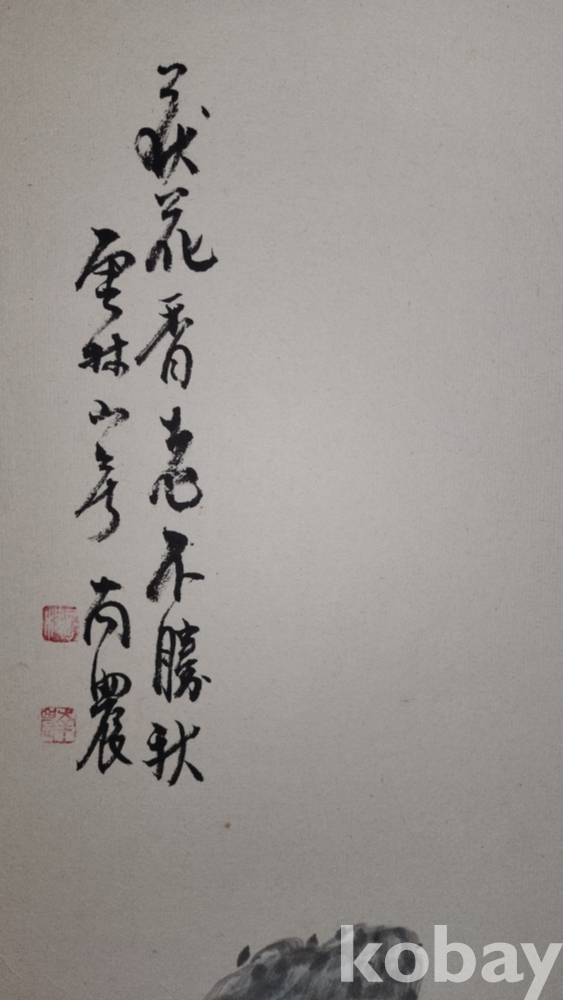 荻花香老不勝秋
雲林山房 南農
kobay